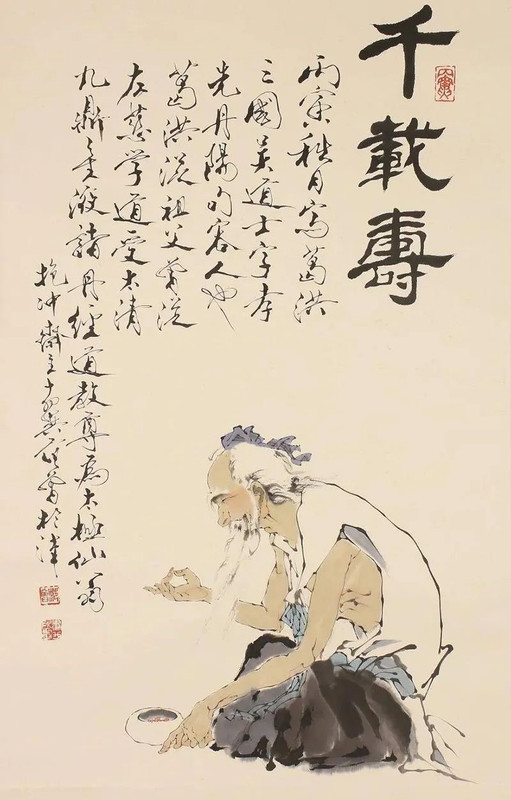 千載壽
丙寅秋月寫葛洪
三國吴道士字孝
先丹陽句容人也
葛洪從祖父曾從
左慈学道受太清
九鼎金液諸丹經道教尊為太極仙翁
抱冲齋主十翼范曾於津